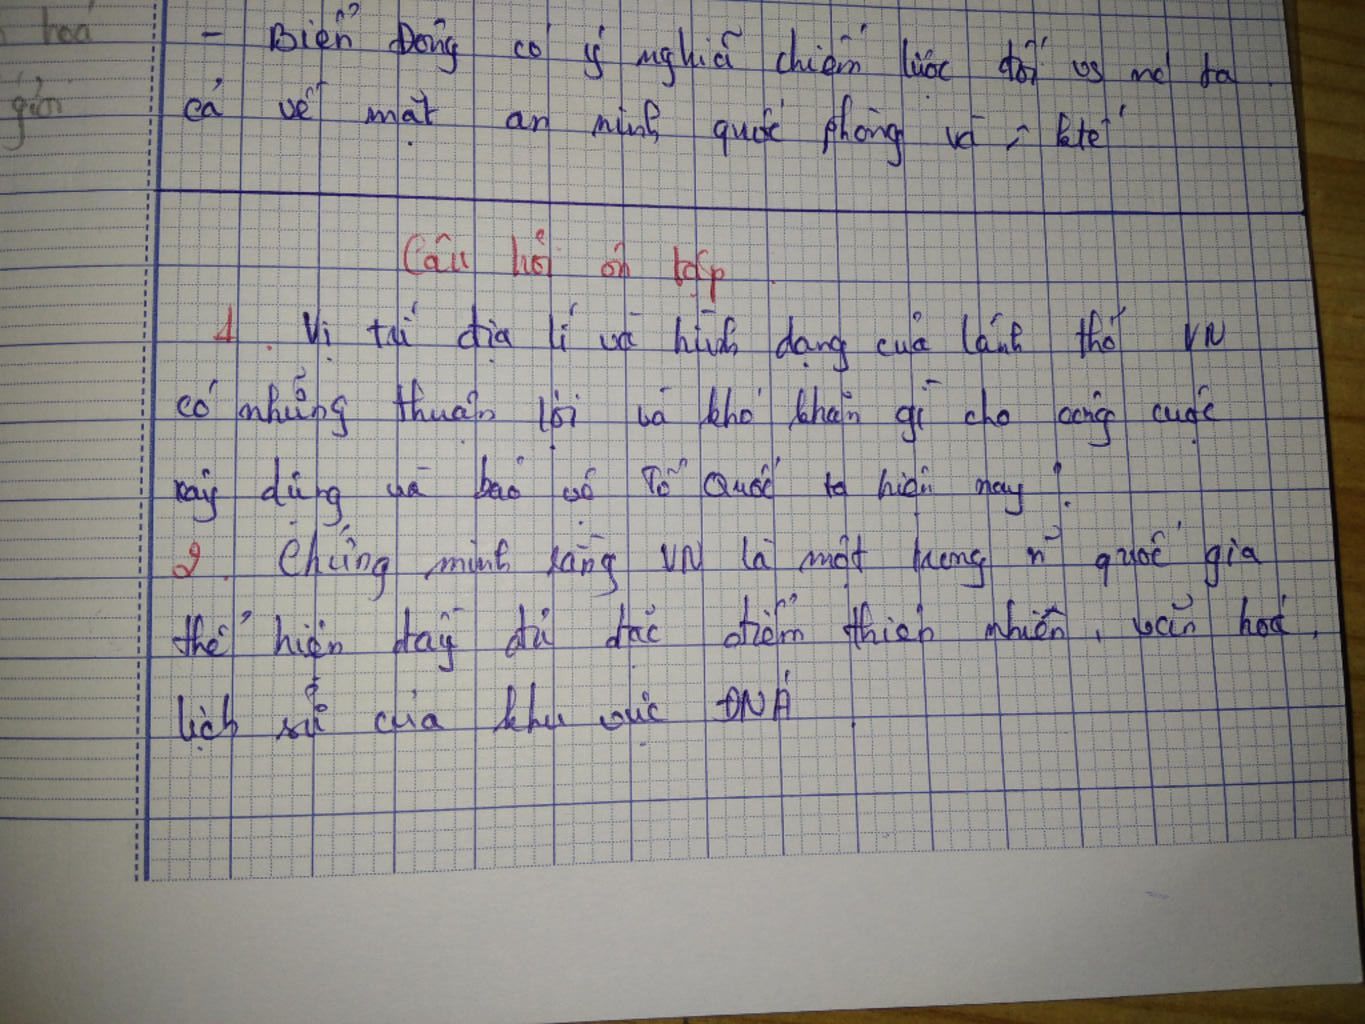 hoá
- Biển Đông có ý nghĩa chiến lược đối vs nc ta
giới
cả về mặt an ninh quốc phòng và kté
Câu hỏi ôn tập.
1. Vị trí địa lí và hình dạng của lãnh thổ VN
có những thuận lợi và khó khăn gì cho công cuộc
xây dựng và bảo vệ Tổ Quốc ta hiện nay?
2. Chứng minh rằng VN là một trong n~ quốc gia
thể hiện đầy đủ đặc điểm thiên nhiên, văn hoá,
lịch sử của khu vực ĐNÁ